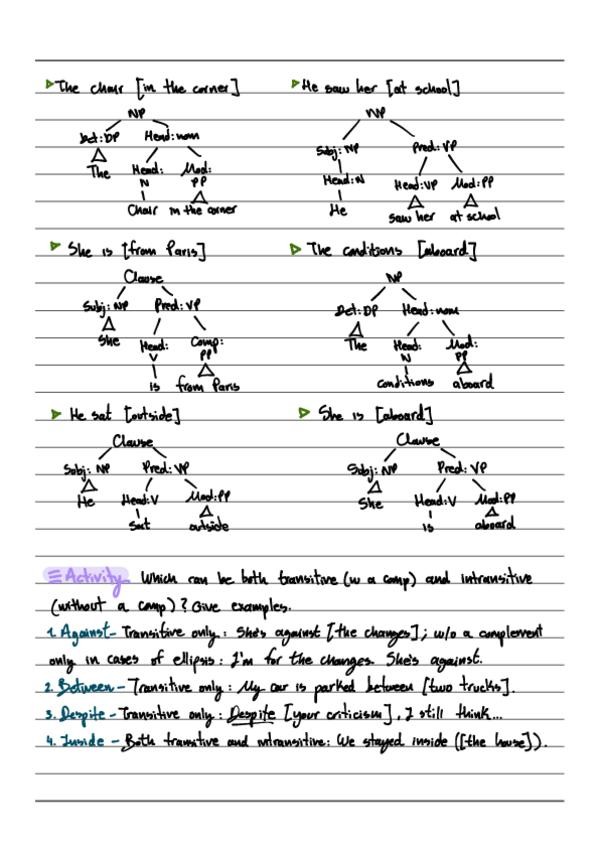 The chair [in the corner]
NP
Det: DP Head: nom
The Head: N Mod: PP
Chair in the corner
He saw her [at school]
NP
Subj: NP Pred: VP
Head: N Head: VP Mod: PP
He saw her at school
She is [from Paris]
Clause
Subj: NP Pred: VP
She Head: V Comp: PP
is from Paris
The conditions [aboard]
NP
Det: DP Head: nom
The Head: N Mod: PP
conditions aboard
He sat [outside]
Clause
Subj: NP Pred: VP
He Head: V Mod: PP
Sat outside
She is [aboard]
Clause
Subj: NP Pred: VP
She Head: V Mod: PP
is aboard
Activity Which can be both transitive (w a comp) and intransitive
(without a comp)? Give examples.
1. Against - Transitive only: She's against [the changes]; w/o a complement
only in cases of ellipsis: I'm for the changes. She's against.
2. Between - Transitive only: My car is parked between [two trucks].
3. Despite - Transitive only: Despite [your criticism], I still think...
4. Inside - Both transitive and intransitive: We stayed inside ([the house]).